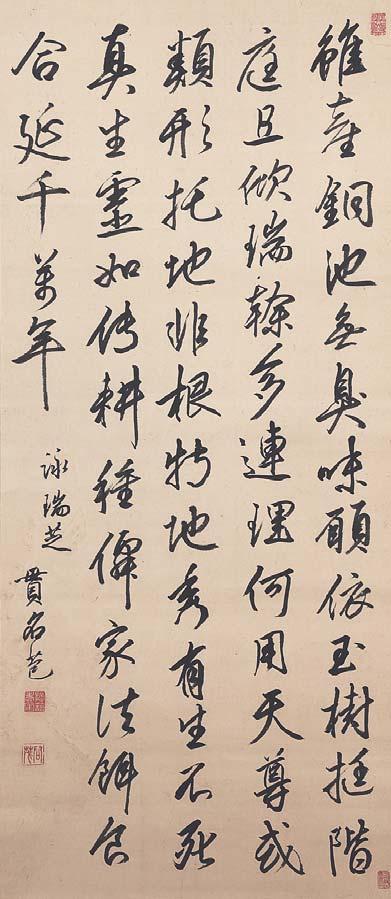 雖産銅池無臭味願依玉樹挺階
庭且欣瑞榦多連理何用天尊或
類形托地非根特地秀有生不死
真生靈如傳耕種僊家法餌食
合延千萬年
詠瑞芝
貫名苞